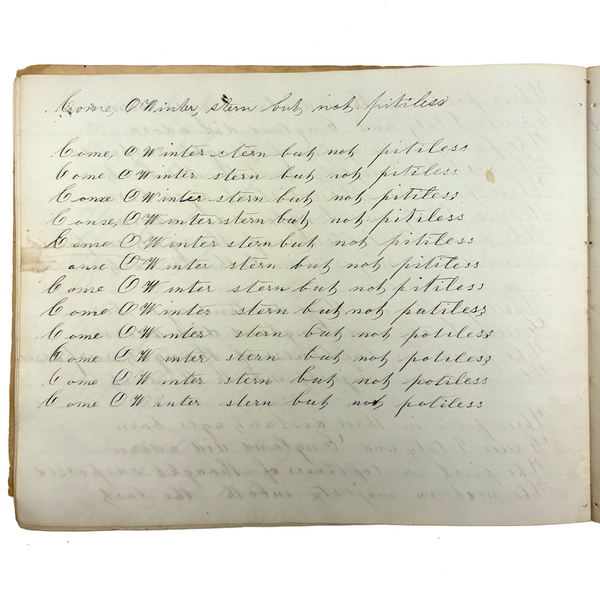 Come, O Winter, stern but not pitiless
Come, O Winter stern but not pitiless
Come O Winter stern but not pitiless
Come O Winter stern but not pitiless
Come, O Winter stern but not pitiless
Come O Winter stern but not pitiless
ame O Winter stern but not pitiless
Come O Winter stern but not pitiless
Come O Winter stern but not patiless
Come O Winter stern but not potiless
Come O Winter stern but not potiless
Come O Winter stern but not potiless
Come O Winter stern but not potiless